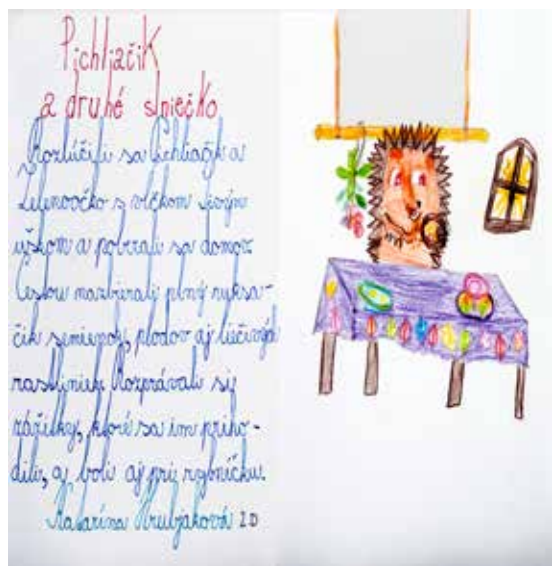 Pichliačik
a druhé slniečko
Rozlúčili sa Pichliačik a
Zelenoočko s vĺčkom Sivým
uškom a pobrali sa domov.
Cestou nazbierali plný ruksa-
čik semienok, plodov aj liečivých
rastliniek. Rozprávali si
zážitky, ktoré sa im priho-
dili, aj boli aj pri rybníčku.
Katarína Hrubjáková 2.D